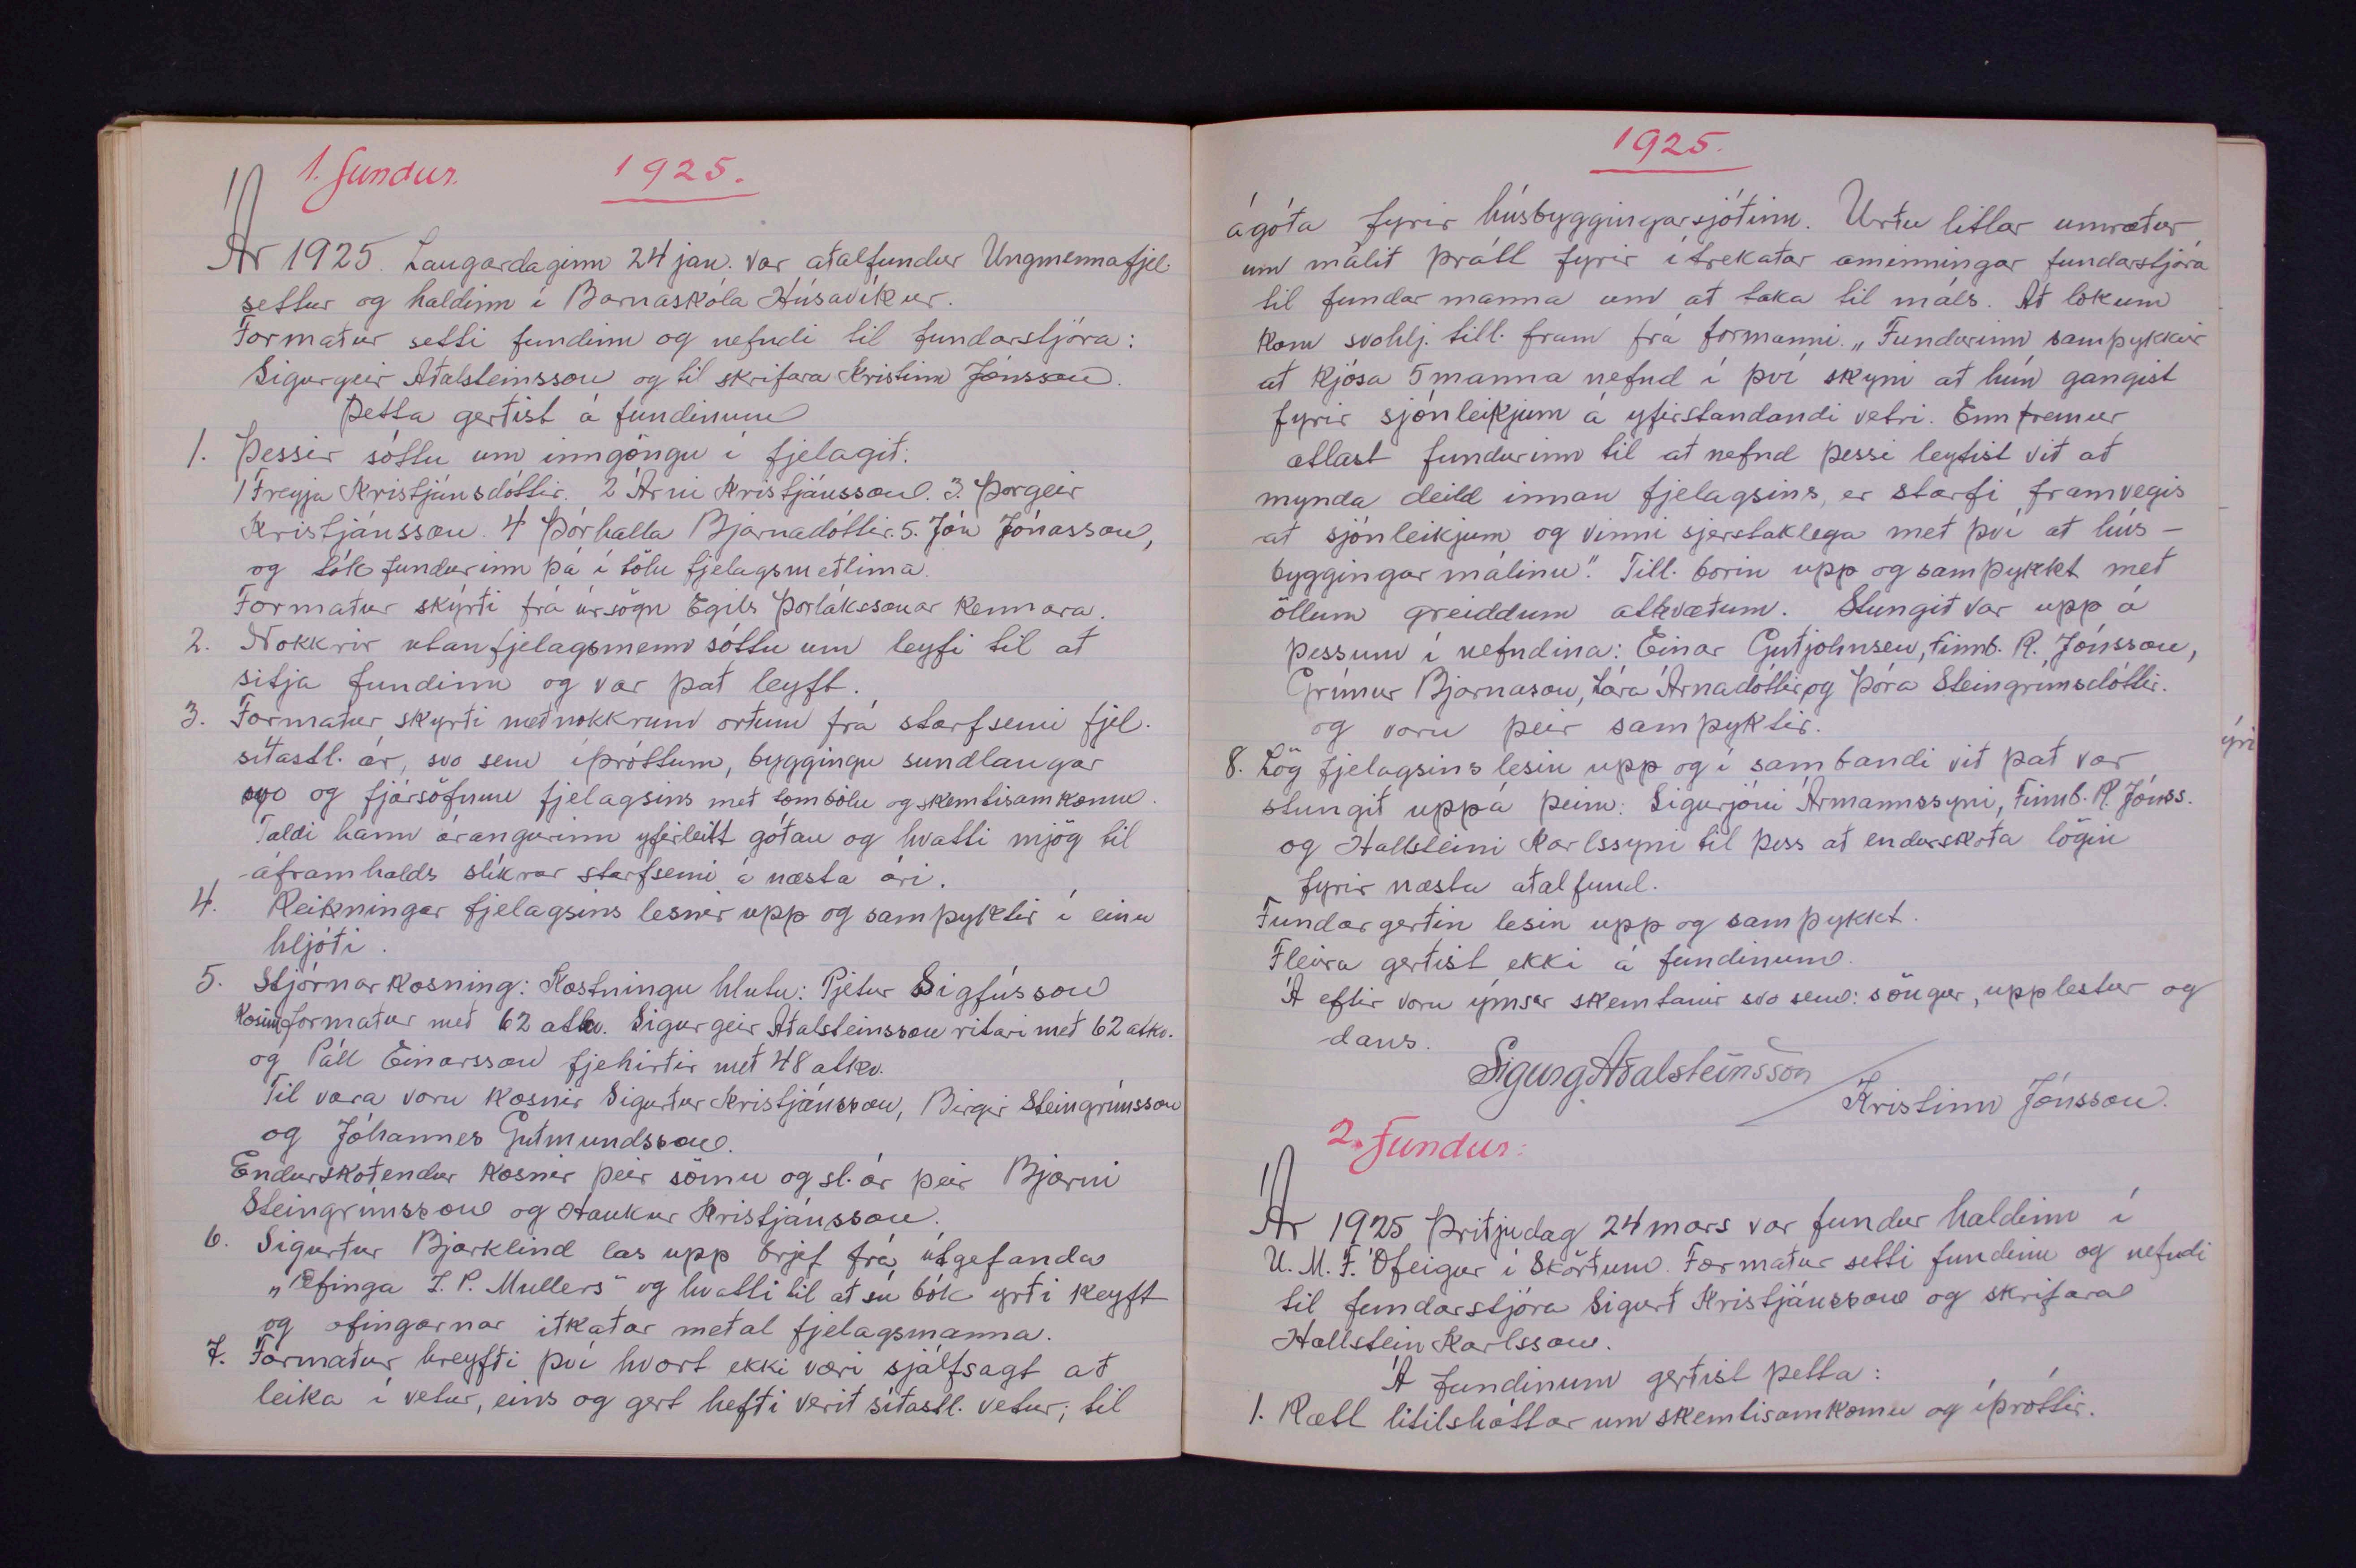 1. fundur. 1925.
Ár 1925. Laugardaginn 24 jan. var aðalfundur Ungmennafjel.
settur og haldinn í Barnaskóla Húsavíkur.
Formaður setti fundinn og nefndi til fundarstjóra:
Sigurgeir Aðalsteinsson og til skrifara Kristinn Jónsson.
Þetta gerðist á fundinum
1. Þessir sóttu um inngöngu í fjelagið:
1 Freyja Kristjánsdóttir. 2 Árni Kristjánsson. 3. Þorgeir
Kristjánsson. 4 Þórhalla Bjarnadóttir. 5. Jón Jónasson,
og tók fundurinn þá í tölu fjelagsmeðlima.
Formaður skýrði frá úrsögn Egils Þorlákssonar kennara.
2. Nokkrir utanfjelagsmenn sóttu um leyfi til að
sitja fundinn og var það leyft.
3. Formaður skyrði með nokkrum orðum frá starfsemi fjel.
síðastl. ár, svo sem íþróttum, byggingu sundlaugar
svo og fjársöfnun fjelagsins með tombólu og skemtisamkomu.
Taldi hann árangurinn yfirleitt góðan og hvatti mjög til
áframhalds slíkrar starfsemi á næsta ári.
4. Reikningar fjelagsins lesnir upp og samþyktir í einu
hljóði.
5. Stjórnarkosning: Kostningu hlutu: Pjetur Sigfússon
kosinn formaður með 62 atkv. Sigurgeir Aðalsteinsson ritari með 62 atkv.
og Páll Einarsson fjehirðir með 48 atkv.
Til vara voru kosnir Sigurður Kristjánsson, Birgir Steingrímsson
og Jóhannes Guðmundsson.
Endurskoðendur kosnir þeir sömu og sl. ár þeir Bjarni
Steingrímsson og Haukur Kristjánsson.
6. Sigurður Bjarklind las upp brjef frá útgefanda
„Æfinga I. P. Mullers" og hvatti til að sú bók yrði keyft
og æfingarnar iðkaðar meðal fjelagsmanna.
7. Formaður hreyfði því hvort ekki væri sjálfsagt að
leika í vetur, eins og gert hefði verið síðastl. vetur; til
1925.
ágóða fyrir húsbyggingarsjóðinn. Urðu litlar umræður
um málið þrátt fyrir ítrekaðar áminningar fundarstjóra
til fundar manna um að taka til máls. Að lokum
kom svohlj. till. fram frá formanni. „Fundurinn samþykkir
að kjósa 5 manna nefnd í því skyni að hún gangist
fyrir sjónleikjum á yfirstandandi vetri. Ennfremur
ætlast fundurinn til að nefnd þessi leytist við að
mynda deild innan fjelagsins, er starfi framvegis
að sjónleikjum og vinni sjerstaklega með því að hús-
byggingar málinu". Till. borin upp og samþykkt með
öllum greiddum atkvæðum. Stungið var upp á
þessum í nefndina: Einar Guðjohnsen, Finnb. R. Jónsson,
Grímur Bjarnason, Lára Árnadóttir og Þóra Steingrímsdóttir.
og voru þeir samþyktir.
8. Lög fjelagsins lesin upp og í sambandi við það var
stungið uppá þeim: Sigurjóni Ármannssyni, Finnb. R. Jónss.
og Hallsteini Karlssyni til þess að endurskoða lögin
fyrir næsta aðalfund.
Fundargerðin lesin upp og samþykkt.
Fleira gerðist ekki á fundinum.
Á eftir voru ýmsar skemtanir svo sem: söngur, upplestur og
dans.
Sigurg Aðalsteinsson / Kristinn Jónsson.
2. Fundur:
Ár 1925 Þriðjudag 24 mars var fundur haldinn í
U. M. F. Ófeigur í Skörðum. Formaður setti fundinn og nefndi
til fundarstjóra Sigurð Kristjánsson og skrifara
Hallstein Karlsson.
Á fundinum gerðist þetta:
1. Rætt lítilsháttar um skemtisamkomu og íþróttir.